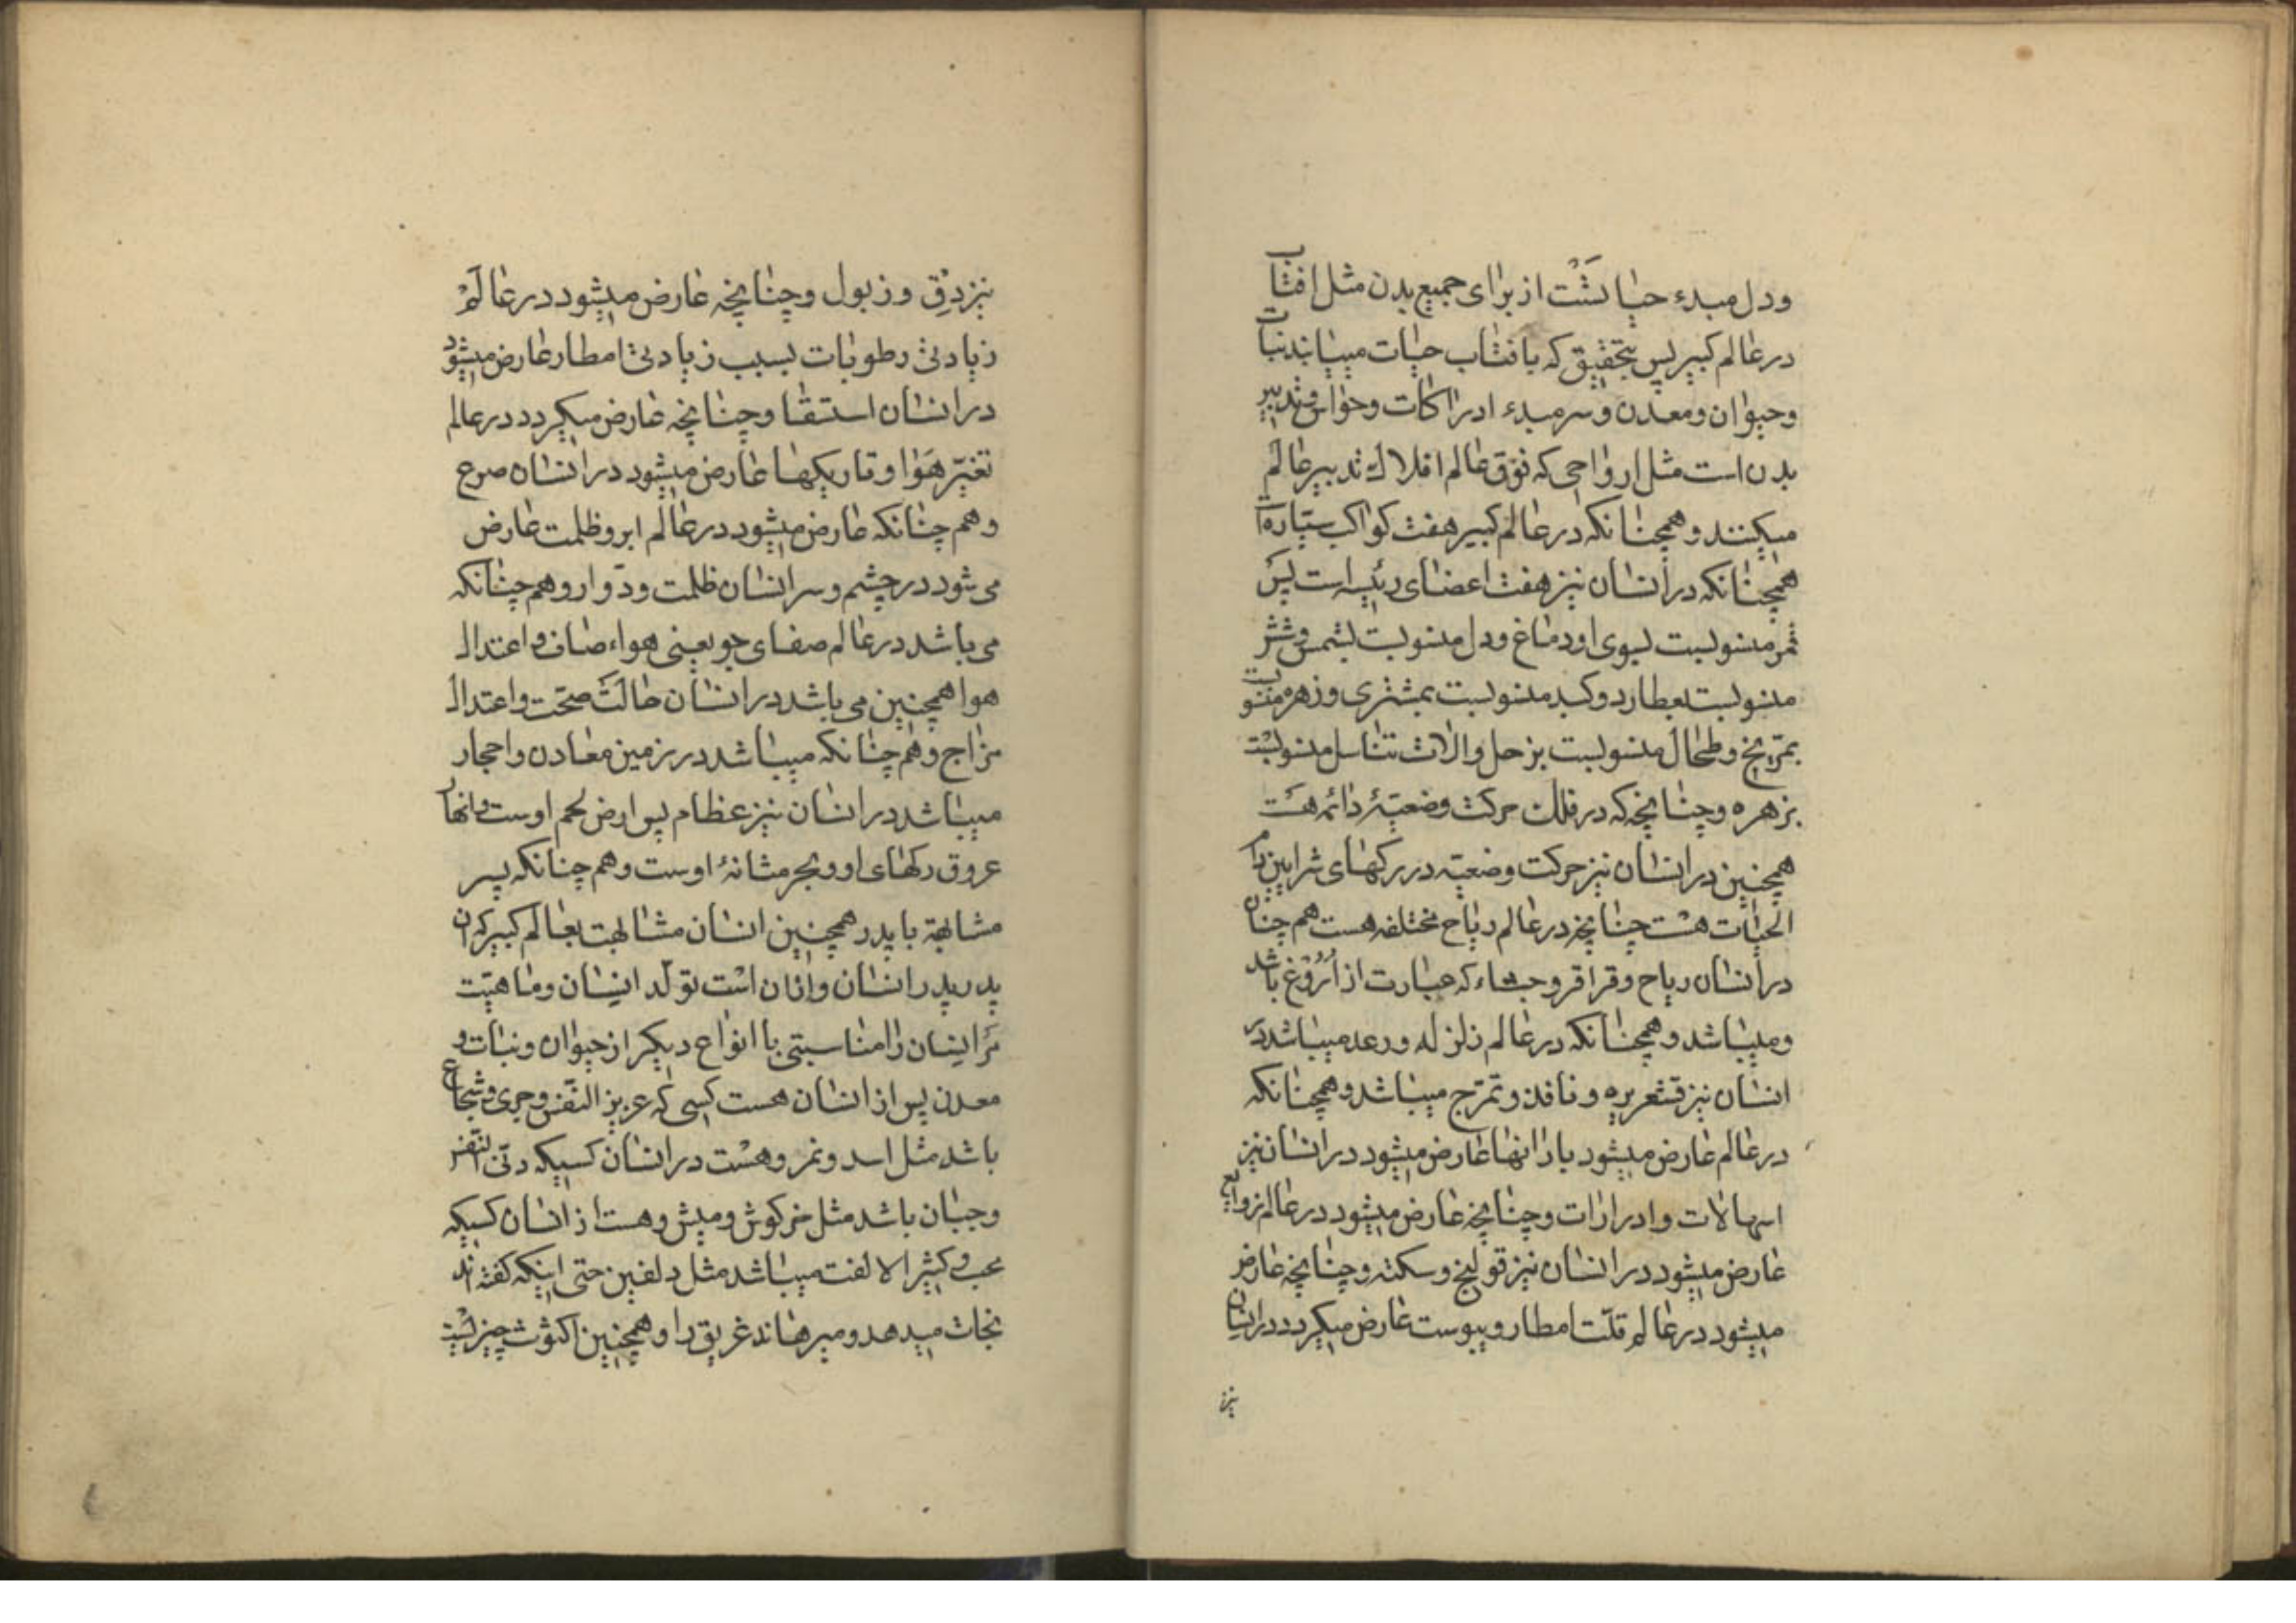 ودل مبدء حیاتست از برای جمیع بدن مثل افتاب
در عالم کبیر پس بتحقیق که بافتاب حیات مییابند نبات
وحیوان ومعدن وسر مبدء ادراکات وحواس وتدبیر
بدن است مثل ارواحی که فوق عالم افلاک تدبیر عالم
میکنند وهمچنانکه در عالم کبیر هفت کواکب سیاره است
همچنانکه در انسان نیز هفت اعضای رئیسه است پس
قمر منسوبست بسوی او دماغ ودل منسوبست بشمس وشش
منسوبست بعطارد وکبد منسوبست بمشتری وزهره منسوبست
بمریخ وطحال منسوبست بزحل والات تناسل منسوبست
بزهره وچنانچه که در فلک حرکت وضعیهٔ دائمه هست
همچنین در انسان نیز حرکت وضعیه در رکهای شرایین دام
الحیات هست چنانچه در عالم ریاح مختلفه هست هم چنان
در انسان ریاح وقراقر وجشاء که عبارت از اروغ باشد
ومیباشد وهمچنانکه در عالم زلزله ورعد میباشد در
انسان نیز قشعریره و نافذ وتمرّج میباشد وهمچنانکه
در عالم عارض میشود بارانها عارض میشود در انسان نیز
اسهالات وادرارات وچنانچه عارض میشود در عالم زوابع
عارض میشود در انسان نیز قولنج وسکته وچنانچه عارض
میشود در عالم قلّت امطار ویبوست عارض میکردد در انسان
نیز
نیز دق وزبول وچنانچه عارض میشود در عالم
زیادتی رطوبات بسبب زیادتی امطار عارض میشود
در انسان استسقا وچنانچه عارض میکردد در عالم
تغیّر هوا وتاریکیها عارض میشود در انسان صرع
وهم چنانکه عارض میشود در عالم ابر وظلمت عارض
می شود در چشم وسر انسان ظلمت ودوار وهم چنانکه
می باشد در عالم صفای جو یعنی هواء صاف واعتدال
هوا همچنین می باشد در انسان حالت صحّت واعتدال
مزاج وهم چنانکه میباشد در زمین معادن واحجار
میباشد در انسان نیز عظام پس ارض لحم اوست وانهار
عروق رکهای او وبحر مثانهٔ اوست وهم چنانکه پسر
مشابهة با پدر همچنین انسان مشابهت بعالم کبیر که ان
پدر پدر انسان وازان است تولّد انسان وماهیّت
مر انسان را مناسبتی با انواع دیکر از حیوان ونبات و
معدن پس از انسان هست کسی که عزیز النّفس وجری وشجاع
باشد مثل اسد ونمر وهست در انسان کسیکه دنّی النّفس
وجبان باشد مثل خرکوش ومیش وهست از انسان کسیکه
محب وکثیر الالفت میباشد مثل دلفین حتی اینکه کفته اند
نجات میدهد ومیرهاند غریق را وهمچنین اکنوث چیزیست